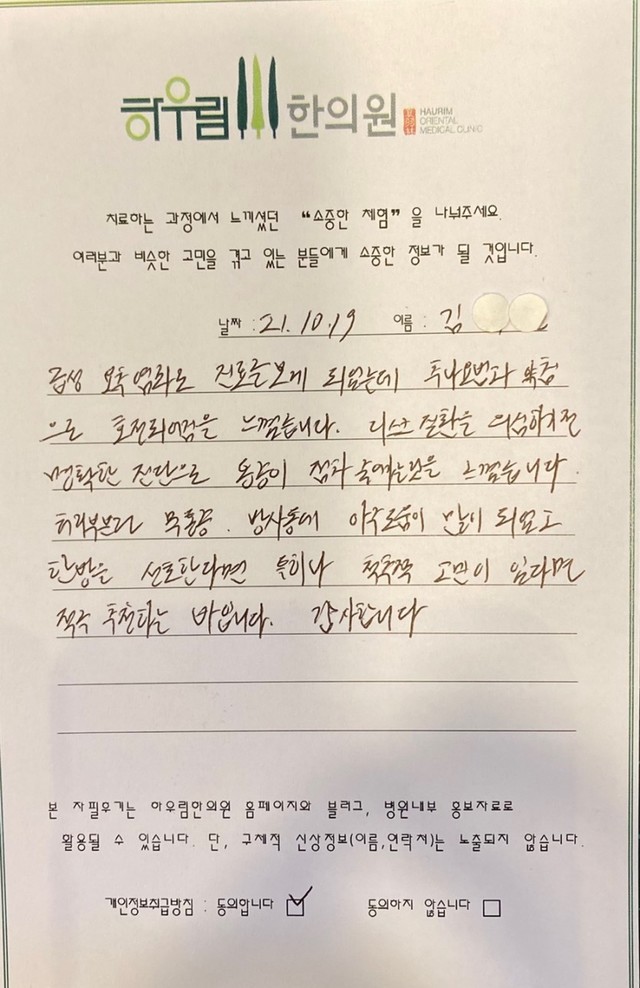 하우림 한의원 HAURIM
ORIENTAL
MEDICAL CLINIC
치료하는 과정에서 느끼셨던 “소중한 체험”을 나눠주세요.
여러분과 비슷한 고민을 겪고 있는 분들에게 소중한 정보가 될 것입니다.
날짜 : 21. 10. 19 이름 : 김
급성 요추 염좌로 진료를 보게 되었는데 추나요법과
으로 호전되어감을 느꼈습니다. 디스크 질환을
명확한 진단으로 통증이 점차 느꼈습니다.
허리부분과 목통증. 방사통에 아주 도움이 많이 되었고
한방을 선호한다면 특히나 척추쪽 고민이 있다면
적극 추천하는 바입니다. 감사합니다
본 자필후기는 하우림한의원 홈페이지와 블러그, 병원내부 홍보자료로
활용될 수 있습니다. 단, 구체적 신상정보(이름,연락처)는 노출되지 않습니다.
개인정보취급방침 : 동의합니다 동의하지 않습니다